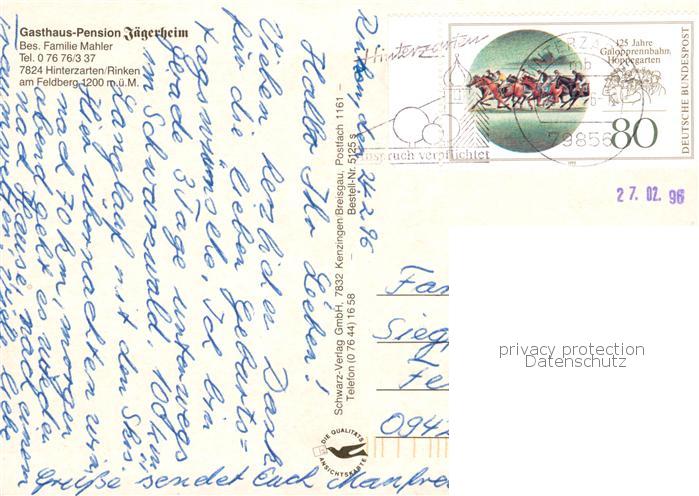 Gasthaus-Pension Jägerheim
Bes. Familie Mahler
Tel. 0 76 76/3 37
7824 Hinterzarten/Rinken
am Feldberg 1200 m.ü.M.
Rinken, den 24.2.96
Hallo Ihr Lieben!
Vielen herzlichen Dank
für die lieben Geburts-
tagswünsche. Ich bin
gerade 3 Tage unterwegs
im Schwarzwald, 100 km
Langlauf mit den Skis.
Hier übernachten wir
noch 70 km, morgen
abend geht es wieder
nach Hause, nach einem
Grüße sendet Euch Manfre
Schwarz-Verlag GmbH, 7832 Kenzingen/Breisgau, Postfach 1161 –
Telefon (0 76 44) 16 58 – Bestell-Nr. 5125 s
DIE QUALITÄTS
ANSICHTSKARTE
Hinterzarten
nspruch verpflichtet
HINTERZA
mb
79856
125 Jahre
Galopprennbahn
Hoppegarten
80
DEUTSCHE BUNDESPOST
27. 02. 96
Fam
Sieg
Fe
094
privacy protection
Datenschutz